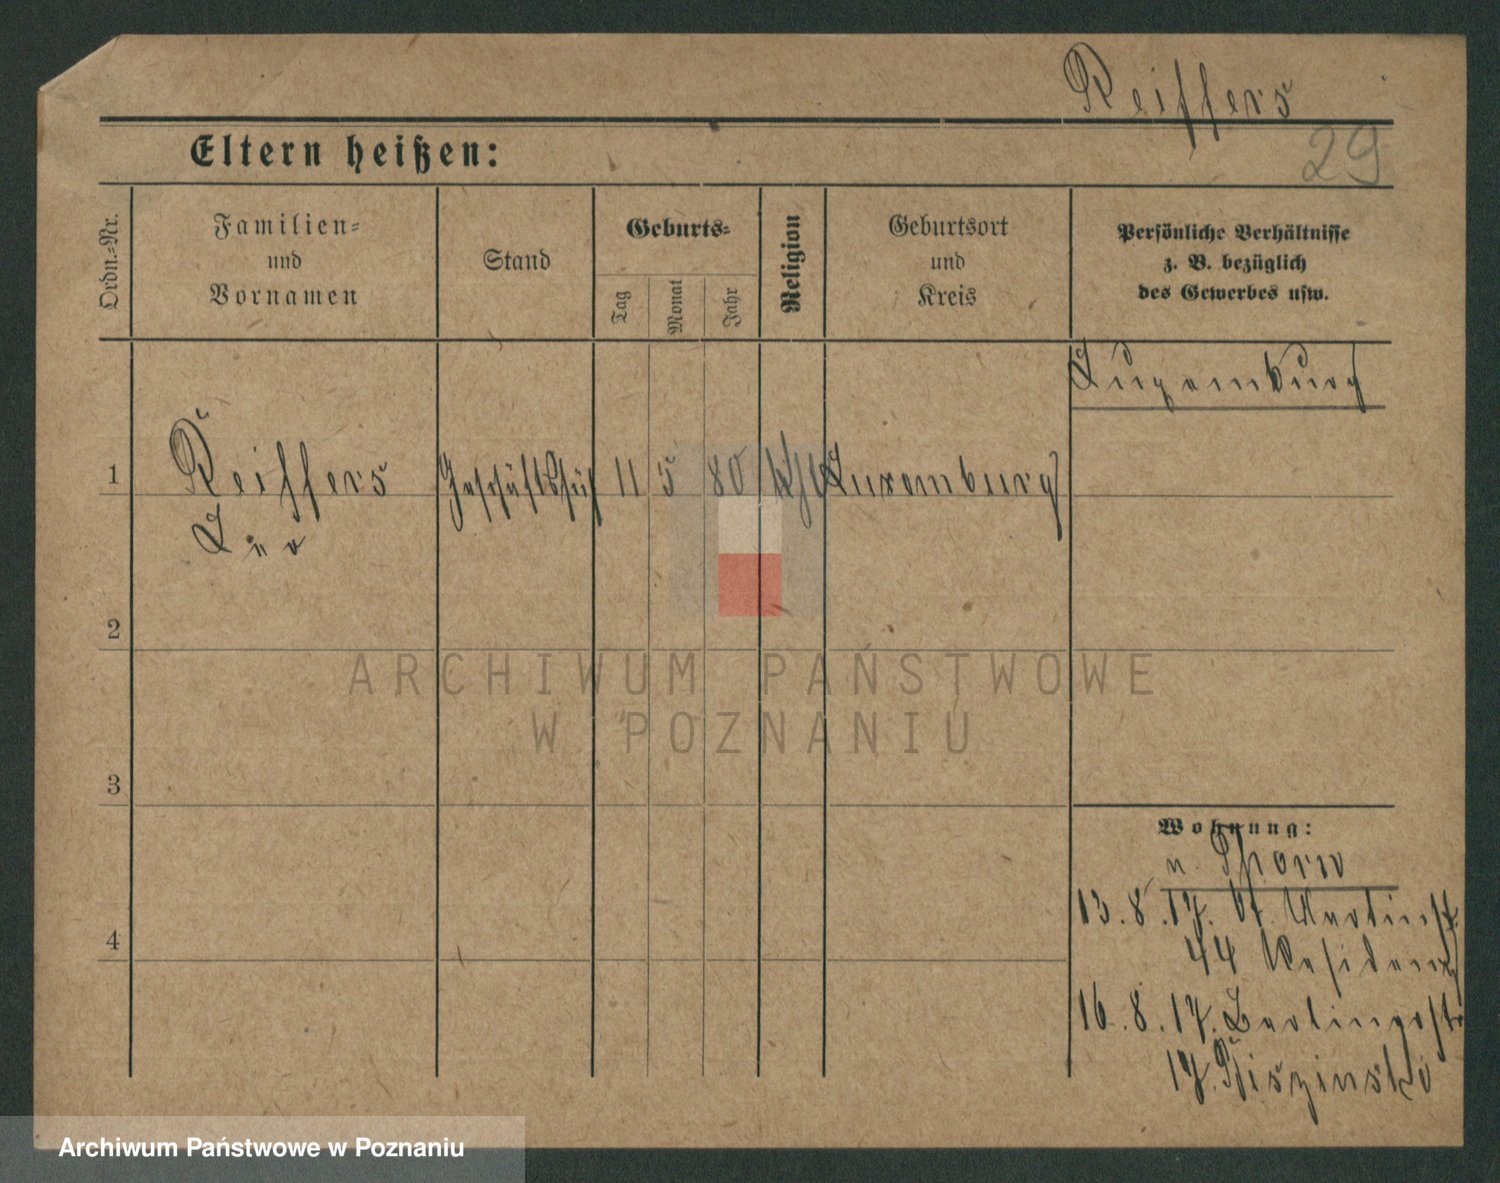 Reiffers
29
Eltern heißen:
Ordn.-Nr.
Familien-
und
Vornamen
Stand
Geburts-
Tag
Monat
Jahr
Religion
Geburtsort
und
Kreis
Persönliche Verhältnisse
z. B. bezüglich
des Gewerbes usw.
Luxemburg
1 Reiffers Geschäftsfüh 11 5 80 kth Luxemburg
Leo
2
ARCHIWUM PAŃSTWOWE
W POZNANIU
3
Wohnung:
n. Thorn
13.8.17. St. Martinst.
4
44 Residenz
16.8.17. Berlinerstr
17. Riszinski
Archiwum Państwowe w Poznaniu